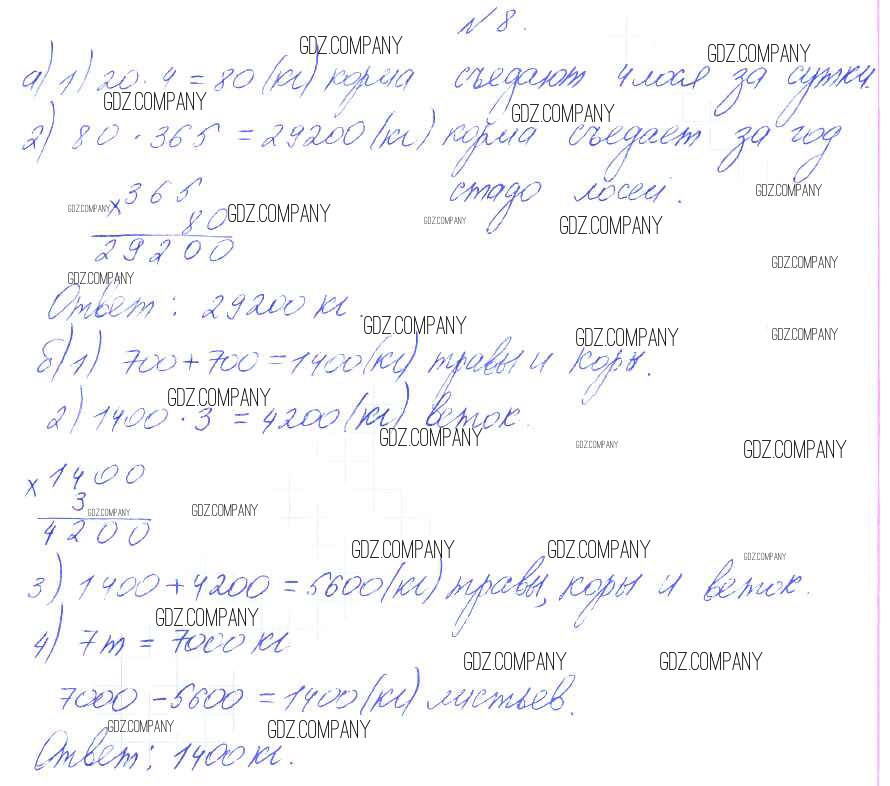 № 8.
GDZ.COMPANY
GDZ.COMPANY
а) 1) 20 · 4 = 80 (кг) корма съедают 4 лося за сутки.
GDZ.COMPANY
GDZ.COMPANY
2) 80 · 365 = 29200 (кг) корма съедает за год
стадо лосей.
× 365
GDZ.COMPANY
GDZ.COMPANY
80
GDZ.COMPANY
GDZ.COMPANY
GDZ.COMPANY
29200
GDZ.COMPANY
GDZ.COMPANY
Ответ: 29200 кг.
GDZ.COMPANY
GDZ.COMPANY
GDZ.COMPANY
б) 1) 700 + 700 = 1400 (кг) травы и коры.
GDZ.COMPANY
2) 1400 · 3 = 4200 (кг) веток.
GDZ.COMPANY
GDZ.COMPANY
GDZ.COMPANY
× 1400
3
GDZ.COMPANY
GDZ.COMPANY
4200
GDZ.COMPANY
GDZ.COMPANY
GDZ.COMPANY
3) 1400 + 4200 = 5600 (кг) травы, коры и веток.
GDZ.COMPANY
4) 7 т = 7000 кг
GDZ.COMPANY
GDZ.COMPANY
7000 – 5600 = 1400 (кг) листьев.
GDZ.COMPANY
GDZ.COMPANY
Ответ: 1400 кг.